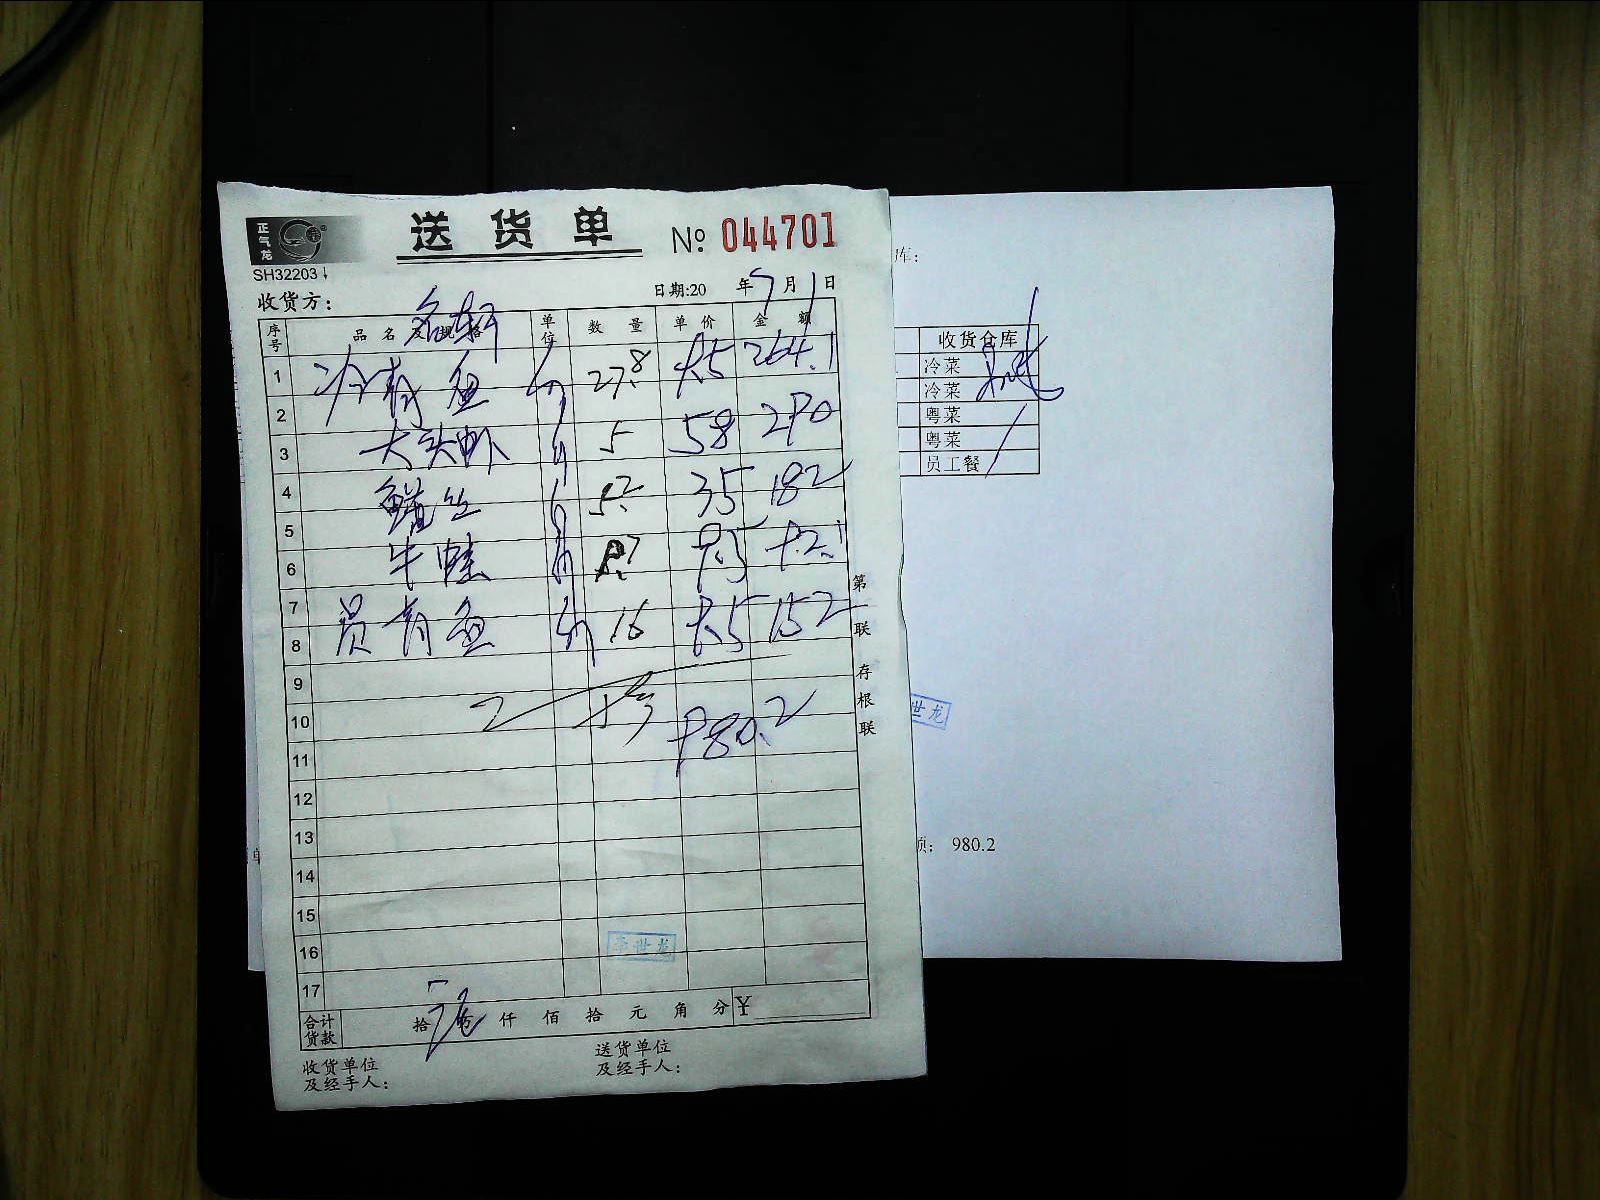 正气龙
送货单 № 044701
SH32203
收货方: 名轩
日期:20 年 7 月 1 日
序号 品名及规格 单位 数量 单价 金额
1 冷青鱼 27.8 9.5 264.1
2
3 大头虾 5 58 290
4 鳝丝 5.2 35 182
5
6 牛蛙 9.7 9.5 92.1
7 员青鱼 16 9.5 152
8
9
10 980.2
11
12
13
14
15
16 李世龙
17
合计货款 拾 万 仟 佰 拾 元 角 分 ¥
收货单位及经手人:
送货单位及经手人:
第 联 存根联
库:
收货仓库
冷菜
冷菜
粤菜
粤菜
员工餐
世龙
额: 980.2